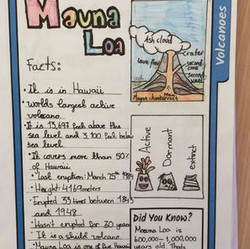 Mauna
Loa
Facts:
• It is in Hawaii
• Worlds largest active
volcano
• It is 13,697 feet above the
sea level and 3,100 feet below
sea level
• It covers more than 50%
of Hawaii
• Last eruption: March 25th 1984
• Height: 4169 meters
• Erupted 33 times between 1843
and 1948.
• Hasnt erupted for 20 years
• It is a shield volcano
• Mauna Loa is one of five Hawaii
Ash cloud
Crater
Lava flow
Second
cone
Magma chamber
Volcanoes
Active
Dormant
extinct
Did You Know?
Mauna Loa is
600,000 - 1,000,000
years old. Thats